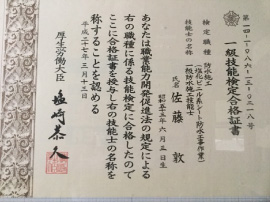 第一四-一-〇八六-一三-〇二一八号
一級技能検定合格証書
検定職種 防水施工
(塩化ビニル系シート防水工事作業)
技能士の名称 一級防水施工技能士
氏名 佐藤 敦
昭和五五年六月五日生
あなたは職業能力開発促進法の規定による
右の職種に係る技能検定に合格したので
ここに合格証書を授与し右の技能士の名称を
称することを認める
平成二十七年三月十三日
厚生労働大臣 塩崎恭久